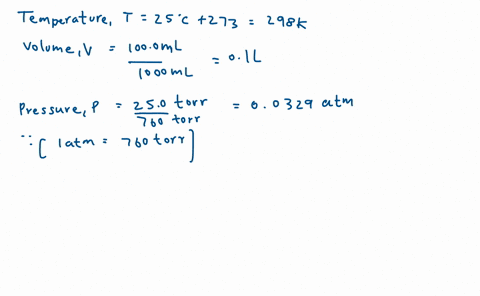 Temperature, T = 25°C + 273 = 298K
Volume, V = 100.0mL / 1000mL = 0.1L
Pressure, P = 25.0 torr / 760 torr = 0.0329 atm
∵ [ 1atm = 760 torr ]